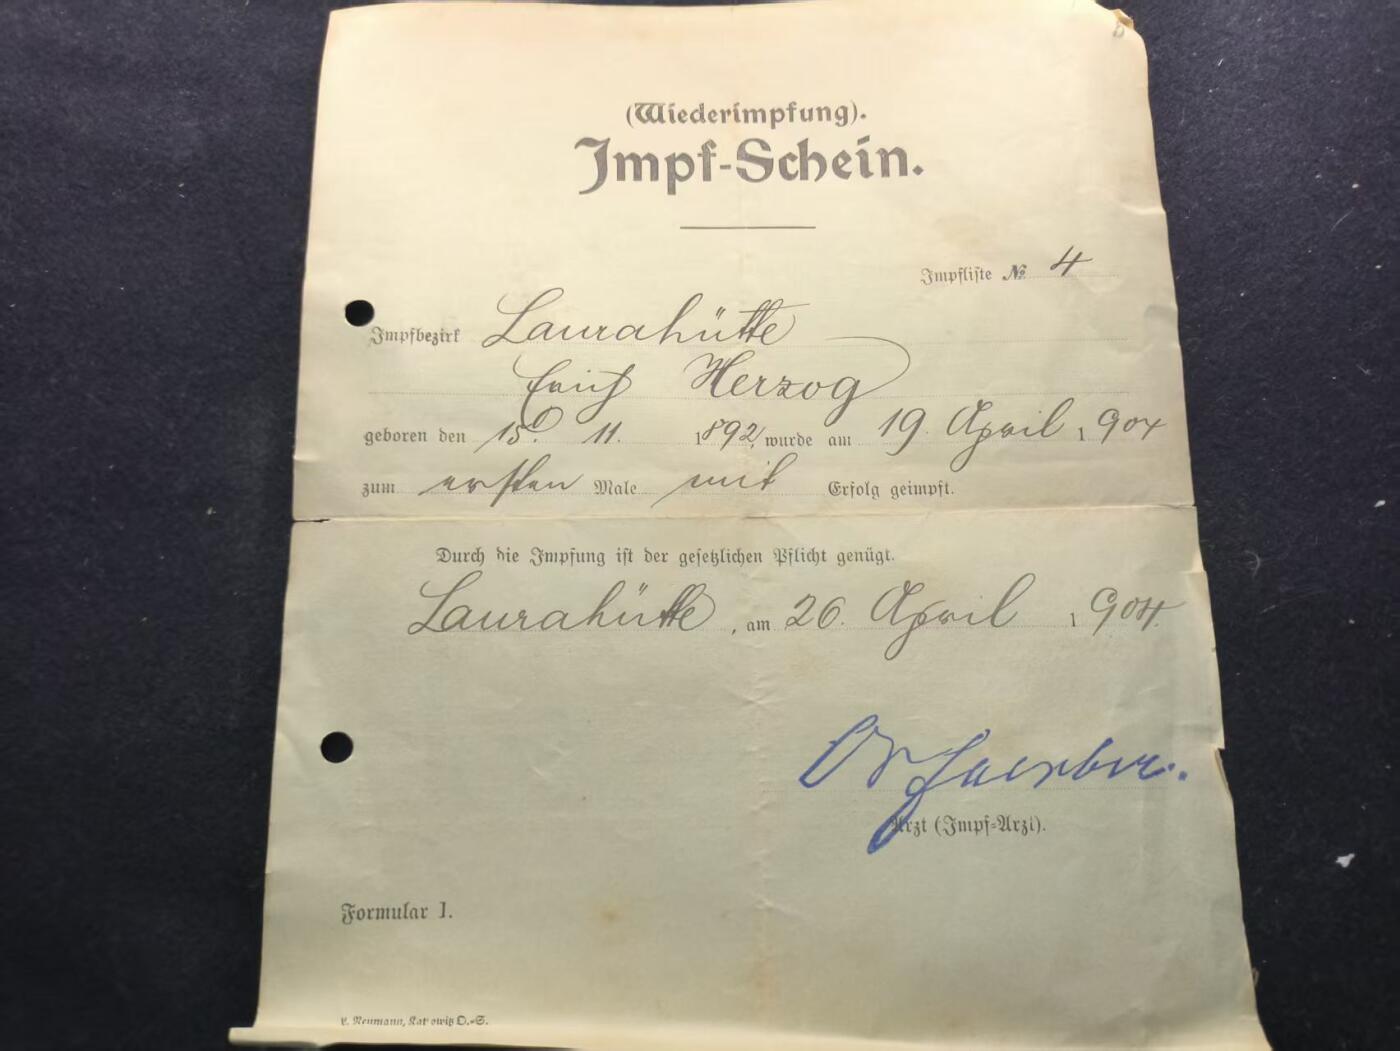 (Wiederimpfung).
Impf-Schein.
Impfliste № 4
Impfbezirk Laurahütte
Erich Herzog
geboren den 15. 11. 1892, wurde am 19. April 1904
zum ersten Male mit Erfolg geimpft.
Durch die Impfung ist der gesetzlichen Pflicht genügt.
Laurahütte, am 26. April 1904.
Dr
Arzt (Impf-Arzt).
Formular 1.
Neumann, Kattowitz O.-S.